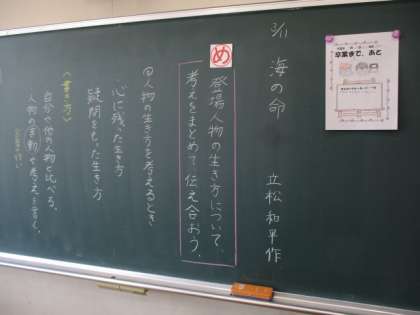 3/11 海の命 立松和平作
め
登場人物の生き方について、
考えをまとめて伝え合おう。
人物の生き方を考えるとき
心に残った生き方
疑問をもった生き方
自分や他の人物と比べる。
人物の言動や考えを書く。
卒業まで、あと